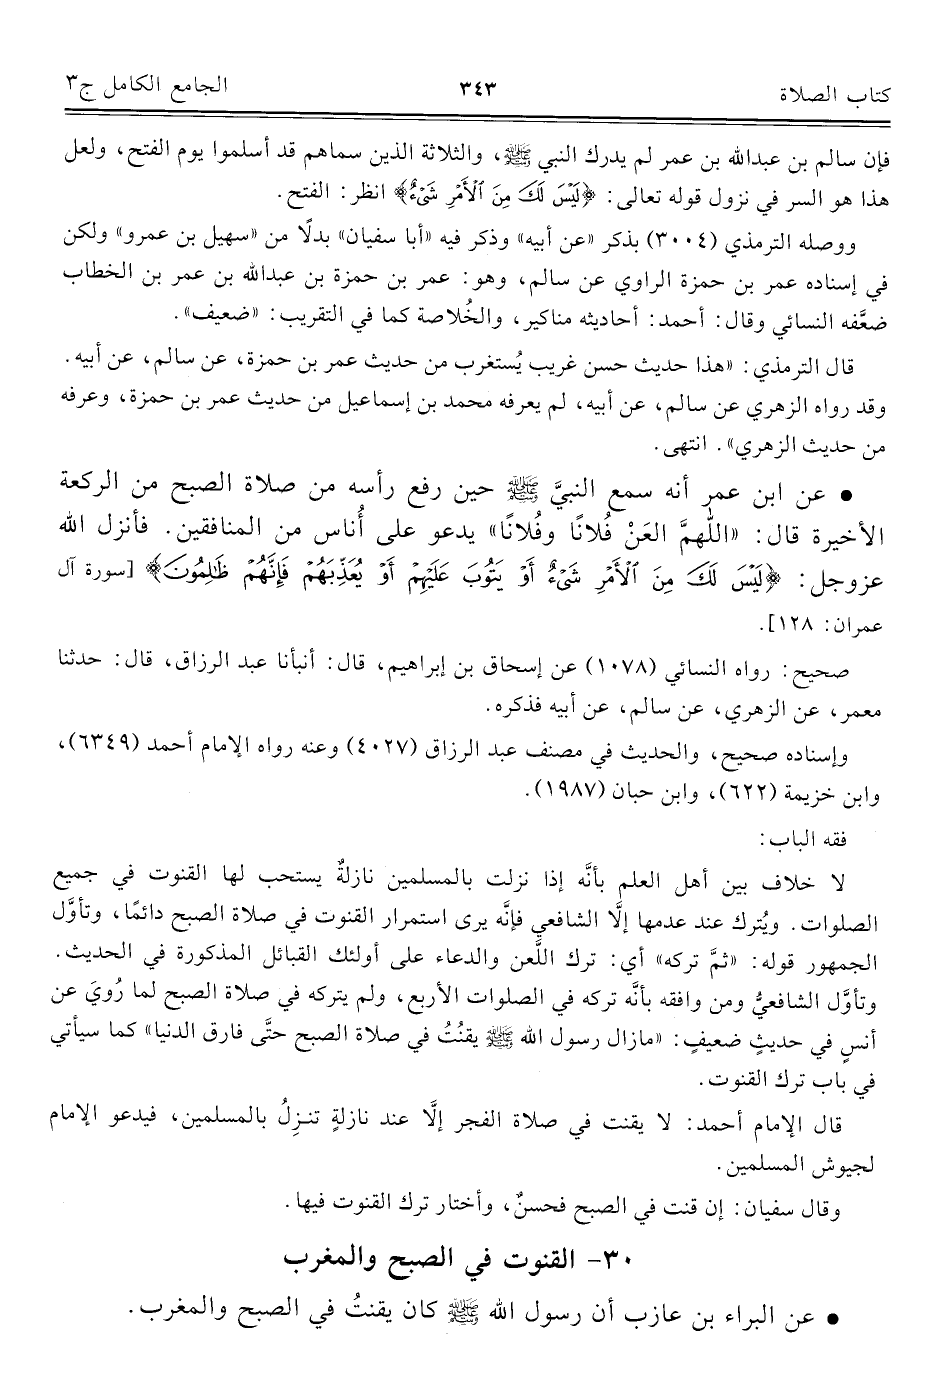 كتاب الصلاة ٣٤٣ الجامع الكامل ج٣
فإن سالم بن عبدالله بن عمر لم يدرك النبي ﷺ، والثلاثة الذين سماهم قد أسلموا يوم الفتح، ولعل
هذا هو السر في نزول قوله تعالى: ﴿لَيْسَ لَكَ مِنَ ٱلْأَمْرِ شَىْءٌ﴾ انظر: الفتح.
ووصله الترمذي (٣٠٠٤) بذكر «عن أبيه» وذكر فيه «أبا سفيان» بدلًا من «سهيل بن عمرو» ولكن
في إسناده عمر بن حمزة الراوي عن سالم، وهو: عمر بن حمزة بن عبدالله بن عمر بن الخطاب
ضعَّفه النسائي وقال: أحمد: أحاديثه مناكير، والخُلاصة كما في التقريب: «ضعيف».
قال الترمذي: «هذا حديث حسن غريب يُستغرب من حديث عمر بن حمزة، عن سالم، عن أبيه.
وقد رواه الزهري عن سالم، عن أبيه، لم يعرفه محمد بن إسماعيل من حديث عمر بن حمزة، وعرفه
من حديث الزهري». انتهى.
• عن ابن عمر أنه سمع النبيَّ ﷺ حين رفع رأسه من صلاة الصبح من الركعة
الأخيرة قال: «اللَّهمَّ العَنْ فُلانًا وفُلانًا» يدعو على أُناس من المنافقين. فأنزل الله
عزوجل: ﴿لَيْسَ لَكَ مِنَ ٱلْأَمْرِ شَىْءٌ أَوْ يَتُوبَ عَلَيْهِمْ أَوْ يُعَذِّبَهُمْ فَإِنَّهُمْ ظَٰلِمُونَ﴾ [سورة آل
عمران: ١٢٨].
صحيح: رواه النسائي (١٠٧٨) عن إسحاق بن إبراهيم، قال: أنبأنا عبد الرزاق، قال: حدثنا
معمر، عن الزهري، عن سالم، عن أبيه فذكره.
وإسناده صحيح، والحديث في مصنف عبد الرزاق (٤٠٢٧) وعنه رواه الإمام أحمد (٦٣٤٩)،
وابن خزيمة (٦٢٢)، وابن حبان (١٩٨٧).
فقه الباب:
لا خلاف بين أهل العلم بأنَّه إذا نزلت بالمسلمين نازلةٌ يستحب لها القنوت في جميع
الصلوات. ويُترك عند عدمها إلَّا الشافعي فإنَّه يرى استمرار القنوت في صلاة الصبح دائمًا، وتأوَّل
الجمهور قوله: «ثمَّ تركه» أي: ترك اللَّعن والدعاء على أولئك القبائل المذكورة في الحديث.
وتأوَّل الشافعيُّ ومن وافقه بأنَّه تركه في الصلوات الأربع، ولم يتركه في صلاة الصبح لما رُويَ عن
أنسٍ في حديثٍ ضعيفٍ: «مازال رسول الله ﷺ يقنُتُ في صلاة الصبح حتَّى فارق الدنيا» كما سيأتي
في باب ترك القنوت.
قال الإمام أحمد: لا يقنت في صلاة الفجر إلَّا عند نازلةٍ تنزِلُ بالمسلمين، فيدعو الإمام
لجيوش المسلمين.
وقال سفيان: إن قنت في الصبح فحسنٌ، وأختار ترك القنوت فيها.
٣٠- القنوت في الصبح والمغرب
• عن البراء بن عازب أن رسول الله ﷺ كان يقنتُ في الصبح والمغرب.